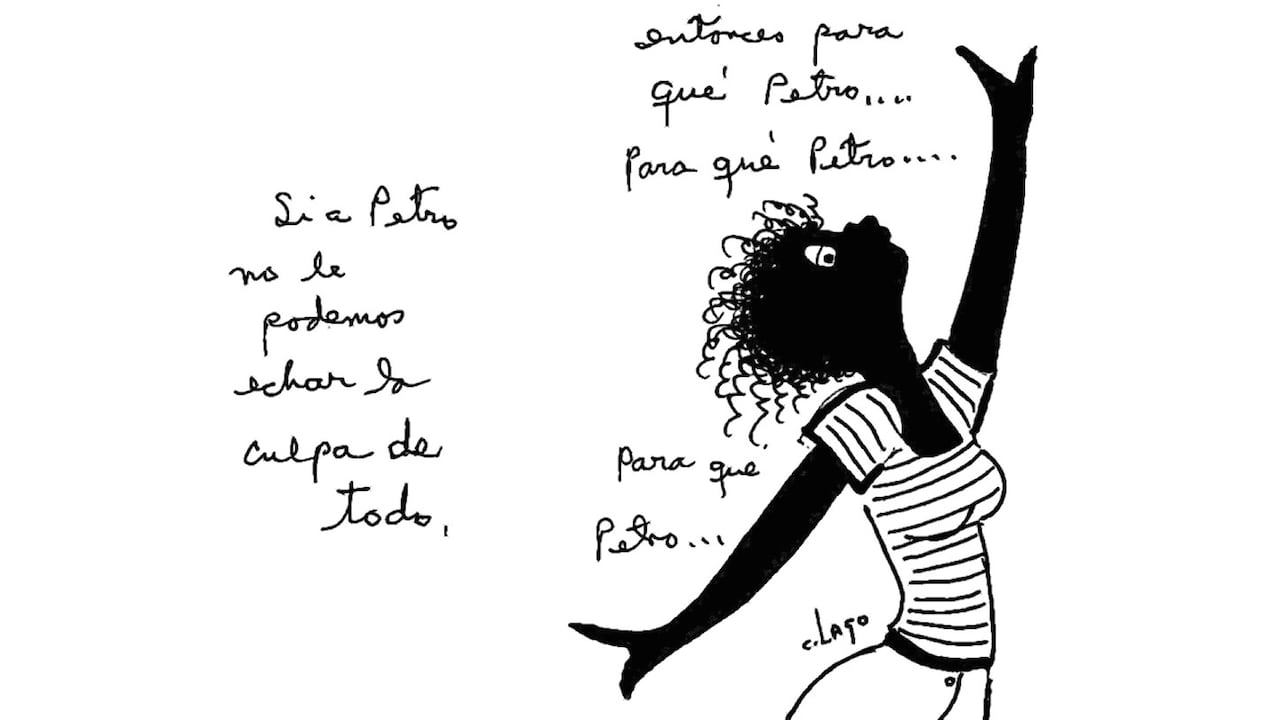 Si a Petro
no le
podemos
echar la
culpa de
todo,
entonces para
qué Petro....
Para qué Petro....
Para qué
Petro...
c.Lago